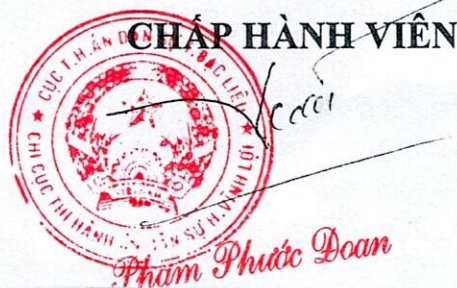 CHẤP HÀNH VIÊN
CỤC T.H.ÁN DÂN T. BẠC LIÊU
CHI CỤC THI HÀNH ÁN DÂN SỰ H. VĨNH LỢI
Phạm Phước Doan